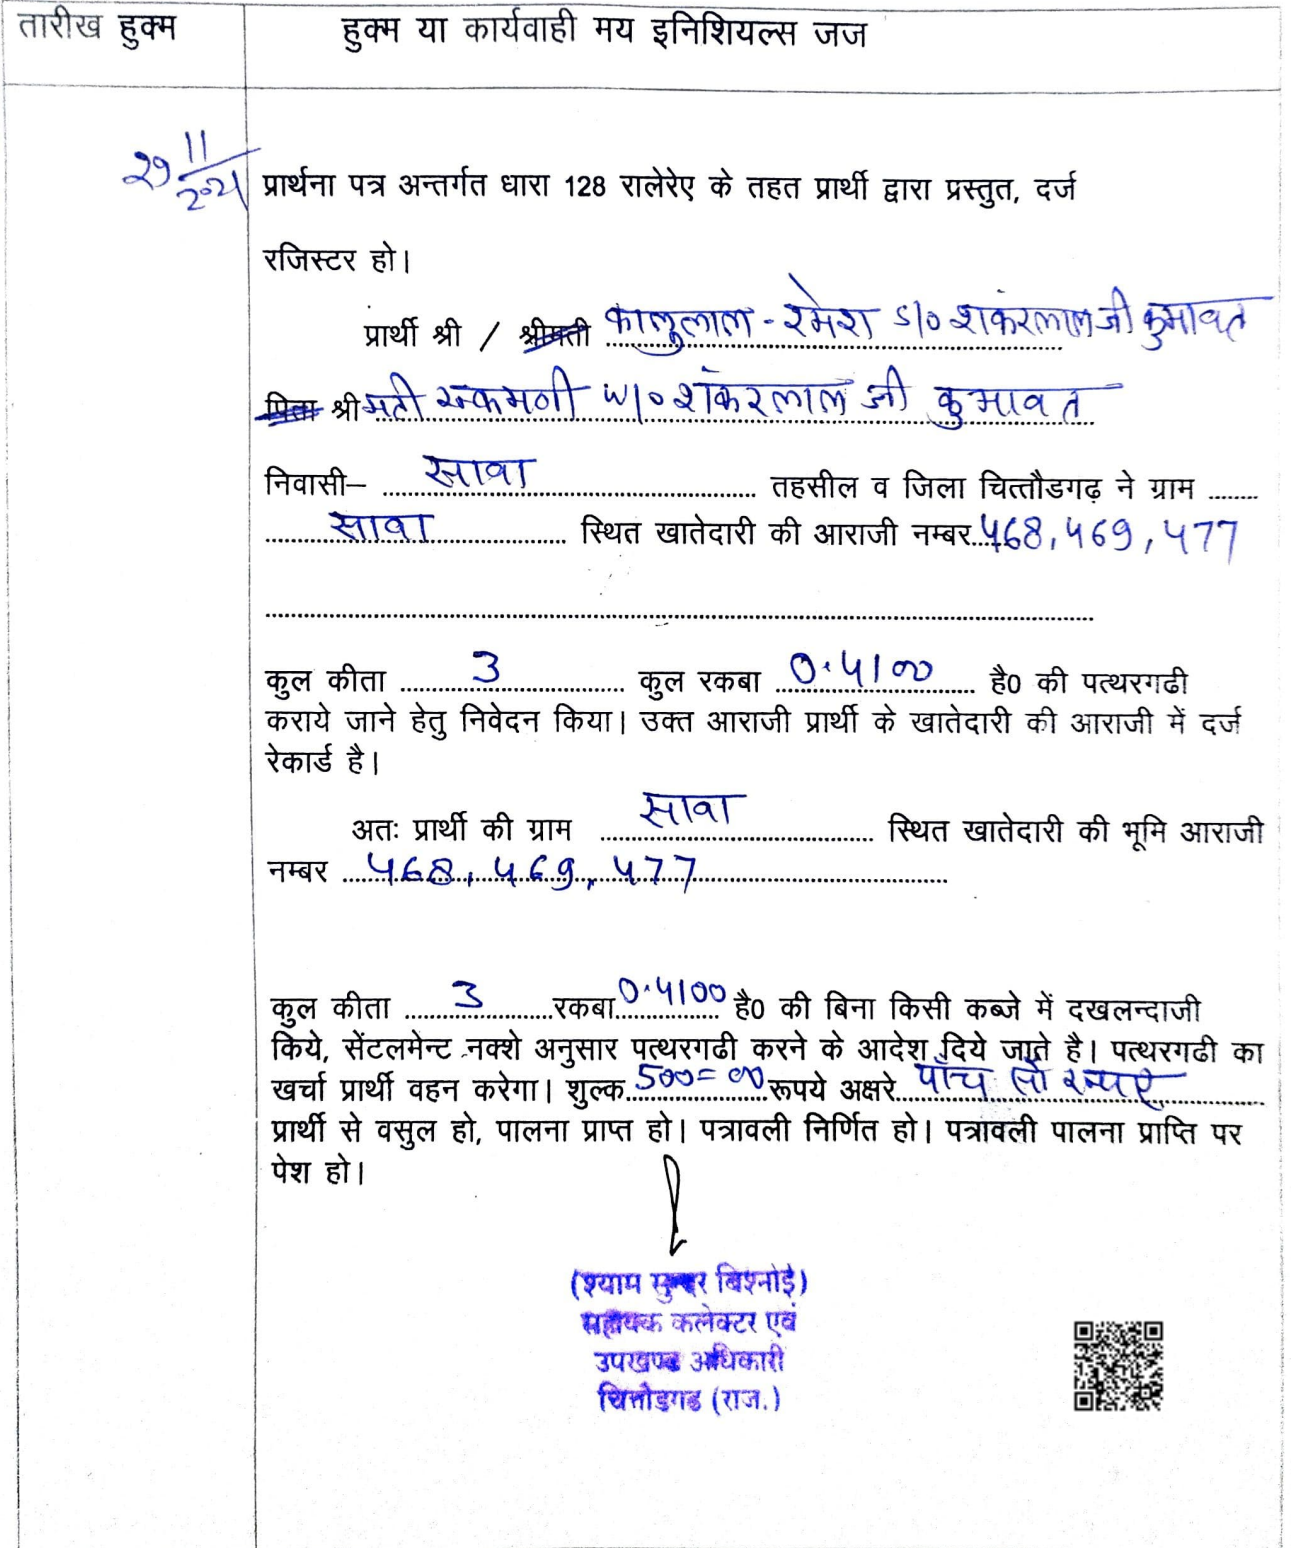 तारीख हुक्म
हुक्म या कार्यवाही मय इनिशियल्स जज
29 11/2021
प्रार्थना पत्र अन्तर्गत धारा 128 रालेरेए के तहत प्रार्थी द्वारा प्रस्तुत, दर्ज
रजिस्टर हो।
प्रार्थी श्री / श्रीमती कालुलाल - रमेश S/o शंकरलाल जी कुमावत
पिता श्रीमती रूकमणी W/o शंकरलाल जी कुमावत
निवासी– सावा तहसील व जिला चित्तौडगढ़ ने ग्राम ........
सावा स्थित खातेदारी की आराजी नम्बर 468, 469, 477
कुल कीता 3 कुल रकबा 0.4100 है0 की पत्थरगढी
कराये जाने हेतु निवेदन किया। उक्त आराजी प्रार्थी के खातेदारी की आराजी में दर्ज
रेकार्ड है।
अतः प्रार्थी की ग्राम सावा स्थित खातेदारी की भूमि आराजी
नम्बर 468, 469, 477
कुल कीता 3 रकबा 0.4100 है0 की बिना किसी कब्जे में दखलन्दाजी
किये, सेंटलमेन्ट नक्शे अनुसार पत्थरगढी करने के आदेश दिये जाते है। पत्थरगढी का
खर्चा प्रार्थी वहन करेगा। शुल्क 500=00 रूपये अक्षरे पाँच सो रूपए
प्रार्थी से वसुल हो, पालना प्राप्त हो। पत्रावली निर्णित हो। पत्रावली पालना प्राप्ति पर
पेश हो।
(श्याम सुन्दर बिश्नोई)
सहायक कलेक्टर एवं
उपखण्ड अधिकारी
चित्तोडगढ (राज.)